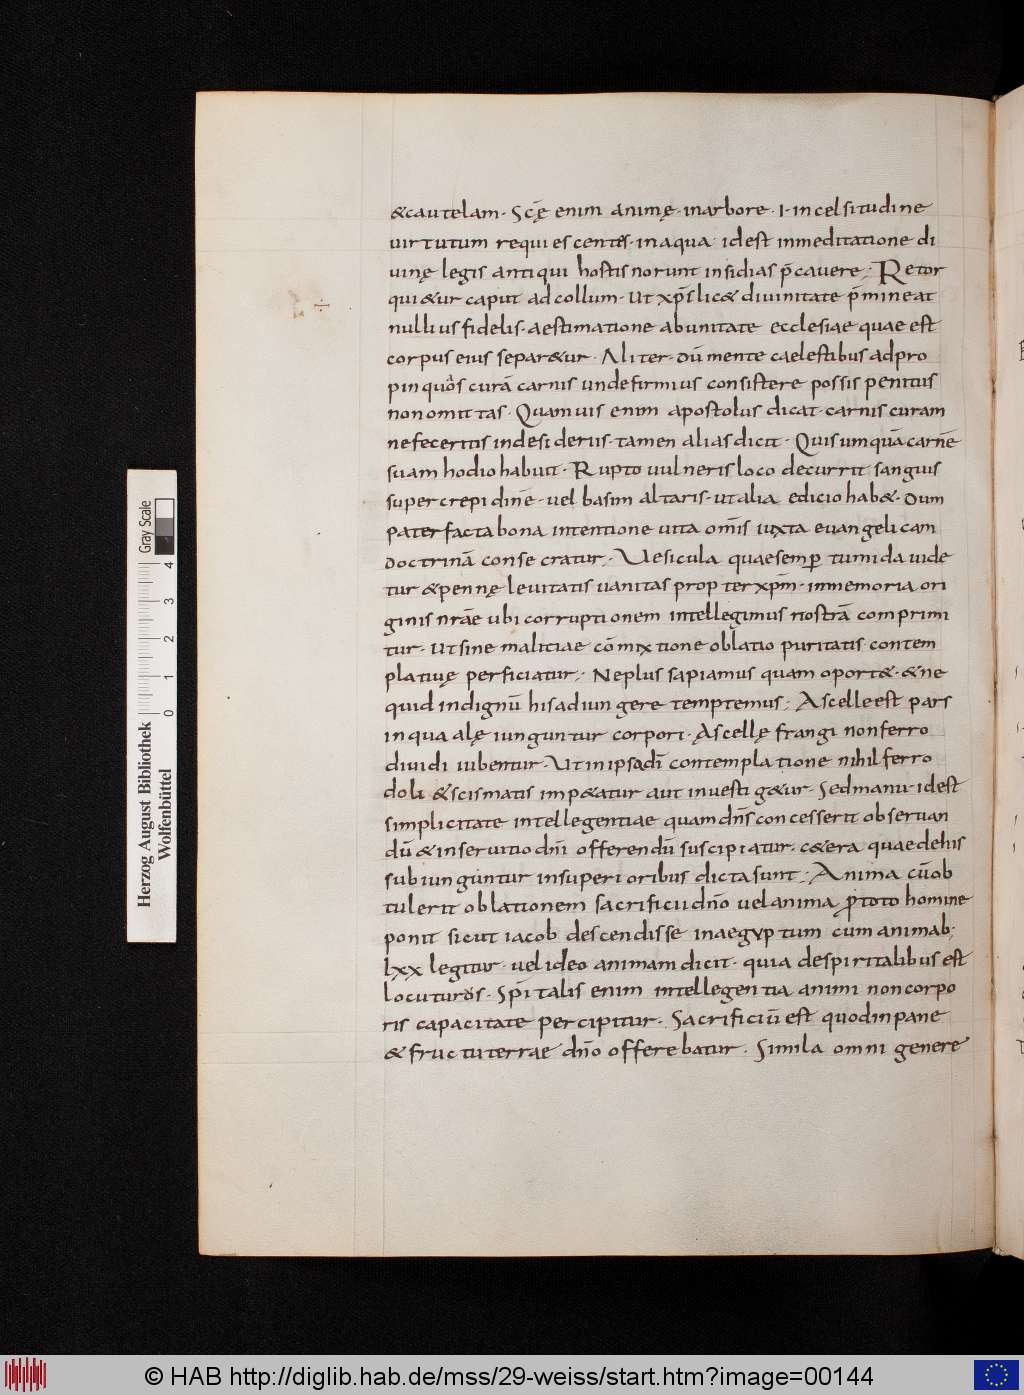 &cautelam· Scę enim animę· inarbore· I· incelsitudine
uirtutum requiescentes· inaqua· idest inmeditatione di
uinę legis antiqui hostis norunt insidias p̄cauere; Retor
qui&ur caput adcollum· ut xp̄s lic& diuinitate p̄mineat
nullius fidelis· aestimatione abunitate ecclesiae quae est
corpus eius separ&ur· Aliter· dū mente caelestibus adpro
pinquos curā carnis unde firmius consistere possis penitus
non omittas· Quamuis enim apostolus dicat· carnis curam
nefeceritis indesideriis· tamen alias dicit· Quis umquā carnē
suam hodio habuit· Rupto uulneris loco decurrit sanguis
super crepidinē· uel basim altaris· ut alia edicio hab&· dum
pater facta bona intentione uita om̄is iuxta euangelicam
doctrinā consecratur; Uesicula quae semp̄ tumida uide
tur & pennę leuitatis uanitas propter xp̄m· inmemoria ori
ginis nrāe ubi corruptionem intellegimus nostrā comprimi
tur· Ut sine maliciae cōmixtione oblatio puritatis contem
platiuę perficiatur; Neplus sapiamus quam oport&· &ne
quid indignū his adiungere temptemus; Ascelle est pars
inqua alę iunguntur corpori· Ascellę frangi nonferro
diuidi iubentur· Ut inipsa dī contemplatione nihil ferro
doli & scismatis imp&atur aut inuestig&ur· Sed manu· idest
simplicitate intellegentiae quam dn̄s concesserit obseruan
dū & inseruitio dn̄i offerendū suscipiatur· c&era quae dehis
subiunguntur insuperioribus dicta sunt; Anima cū ob
tulerit oblationem sacrificii dn̄o uel anima p̄ toto homine
ponit sicut iacob descendisse inaegyptum cum animab;
lxx legitur· uel ideo animam dicit· quia despiritalibus est
locuturus· Spītalis enim intellegentia animi non corpo
ris capacitate percipitur· Sacrificiū est quod inpane
& fructu terrae dn̄o offerebatur· Simila omni genere
÷
Gray Scale
0 1 2 3 4
Herzog August Bibliothek
Wolfenbüttel
© HAB http://diglib.hab.de/mss/29-weiss/start.htm?image=00144